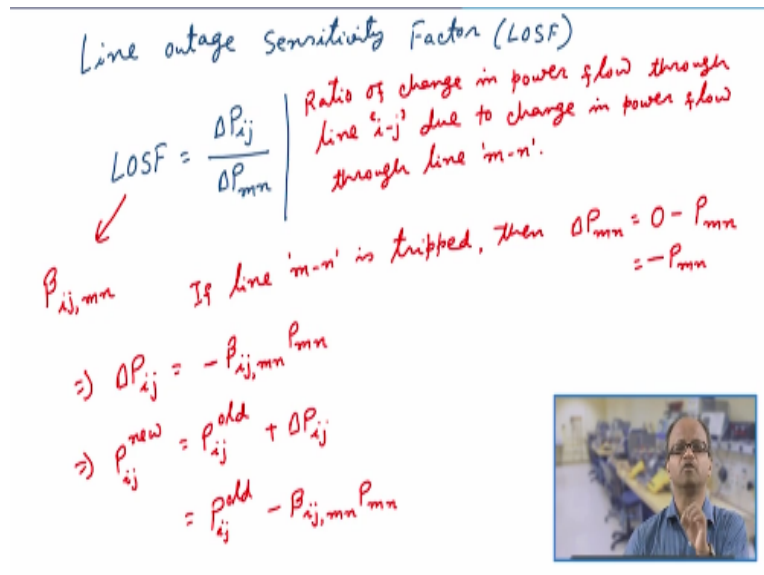 Line outage Sensitivity Factor (LOSF)
LOSF = ΔP_ij / ΔP_mn
Ratio of change in power flow through
line 'i-j' due to change in power flow
through line 'm-n'.
β_ij,mn
If line 'm-n' is tripped, then ΔP_mn = 0 - P_mn
= -P_mn
=> ΔP_ij = -β_ij,mn P_mn
=> P_ij^new = P_ij^old + ΔP_ij
= P_ij^old - β_ij,mn P_mn